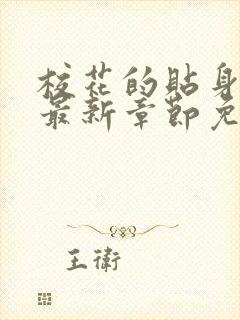 校花的貼身
最新章節免
王衛